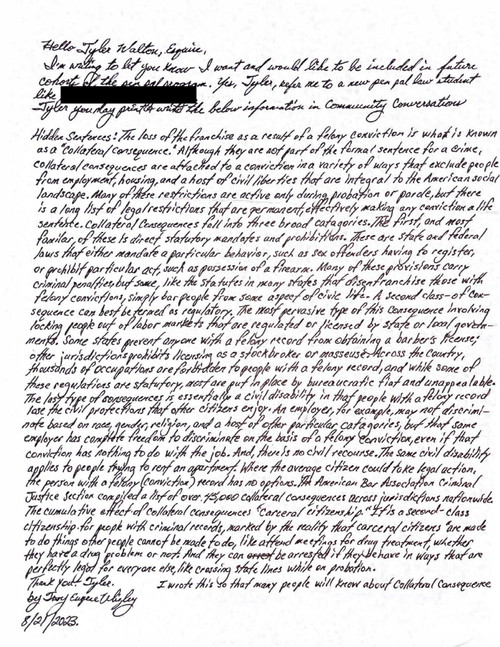 Hello Tyler Walton, Esquire,
I'm writing to let you know I want and would like to be included in future
cohorts of the pen pal program. Yes, Tyler, refer me to a new pen pal law student
like
Tyler you day print & write the below information in Community Conversations
Hidden Sentences: The loss of the franchise as a result of a felony conviction is what is known
as a "Collateral Consequence." Although they are not part of the formal sentence for a crime,
collateral consequences are attached to a conviction in a variety of ways that exclude people
from employment, housing, and a host of civil liberties that are integral to the American social
landscape. Many of these restrictions are active only during probation or parole, but there
is a long list of legal restrictions that are permanent, effectively making any conviction a life
sentence. Collateral Consequences fall into three broad catagories. The first, and most
familar, of these is direct statutory mandates and prohibitions. These are state and federal
laws that either mandate a particular behavior, such as sex offenders having to register,
or prohibit particular act, such as possession of a firearm. Many of these provisions carry
criminal penalties but some, like the statutes in many states that disenfranchise those with
felony convictions, simply bar people from some aspect of civic life. A second class of con-
sequence can best be termed as regulatory. The most pervasive type of this consequence involving
locking people out of labor markets that are regulated or licensed by state or local govern-
ments. Some states prevent anyone with a felony record from obtaining a barber's license;
other jurisdictions prohibits licensing as a stockbroker or masseuse. Across the country,
thousands of occupations are forbidden to people with a felony record, and while some of
these regulations are statutory, most are put in place by bureaucratic fiat and unappealable.
The last type of consequences is essentially a civil disability in that people with a felony record
lose the civil protections that other citizens enjoy. An employer, for example, may not discrimi-
nate based on race, gender, religion, and a host of other particular catagories, but that same
employer has complete freedom to discriminate on the basis of a felony conviction, even if that
conviction has nothing to do with the job. And, there is no civil recourse. The same civil disability
applies to people trying to rent an apartment. Where the average citizen could take legal action,
the person with a felony (conviction) record has no options. The American Bar Association Criminal
Justice Section compiled a list of over 45,000 collateral consequences across jurisdictions nationwide.
The cumulative effect of collateral consequences "Carceral citizenship." It is a second-class
citizenship for people with criminal records, marked by the reality that carceral citizens are made
to do things other people cannot be made to do, like attend meetings for drug treatment, whether
they have a drug problem or not. And they can be arrested if they behave in ways that are
perfectly legal for everyone else, like crossing state lines while on probation.
Thank you - Tyler. I wrote this so that many people will know about Collateral Consequence
by Tony Eugene Wigley
8/21/2023.